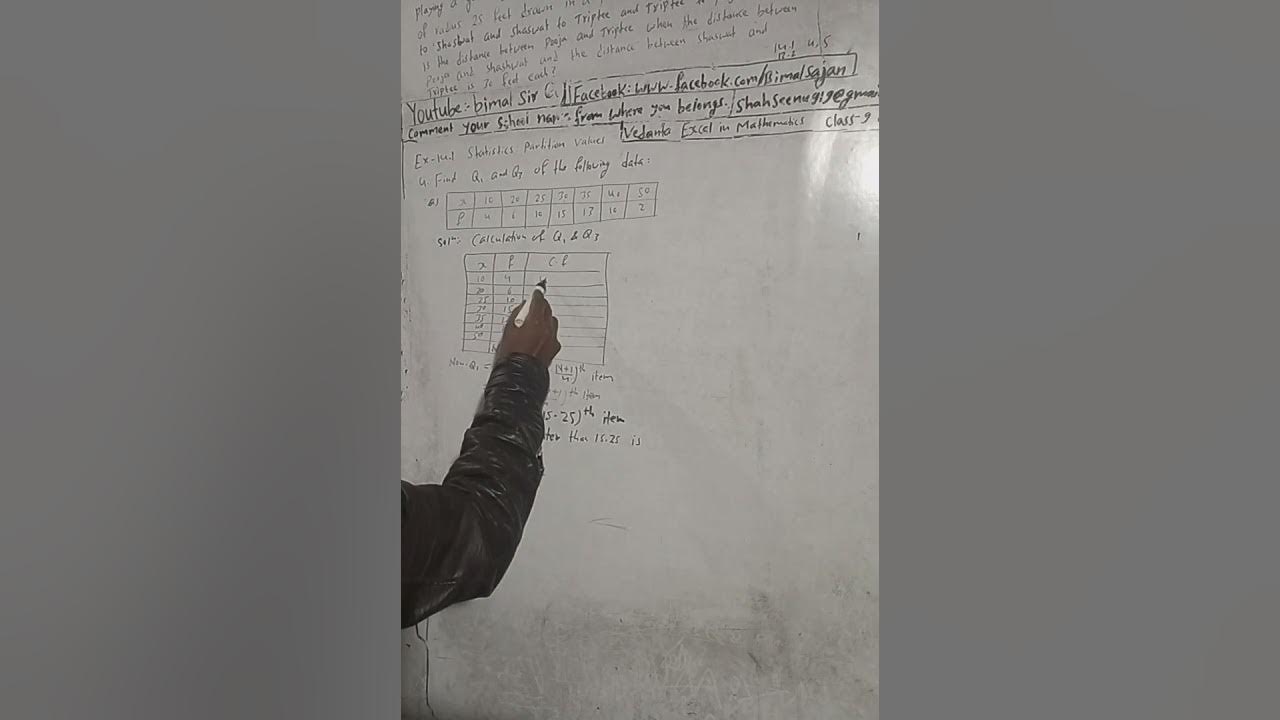 playing a
of radius 25 feet drawn in a
to Shashwat and Shaswat to Triptee and Triptee to
is the distance between Pooja and Triptee when the distance between
Pooja and Shashwat and the distance between Shaswat and
Triptee is 30 feet each?
14.1 4, 5
Youtube:- bimal Sir
Facebook: www.facebook.com/Bimalsajan
Comment your School nam from where you belongs.
Shahseenu919@gmai
Vedanta Excel in Mathematics Class-9
Ex-14.1 Statistics Partition values
4. Find Q1 and Q3 of the following data:
a)
x 10 20 25 30 35 40 50
f 4 6 10 15 13 10 2
Solⁿ: Calculation of Q1 & Q3
x f C.f
10 4
20 6
25 10
30 15
35
40
50
Now. Q1 =
N+1
4
)th item
+1)th item
15.25)th item
ter than 15.25 is